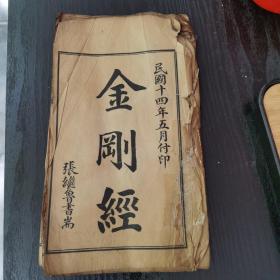 民國十四年五月付印
金剛經
張繼魯書耑